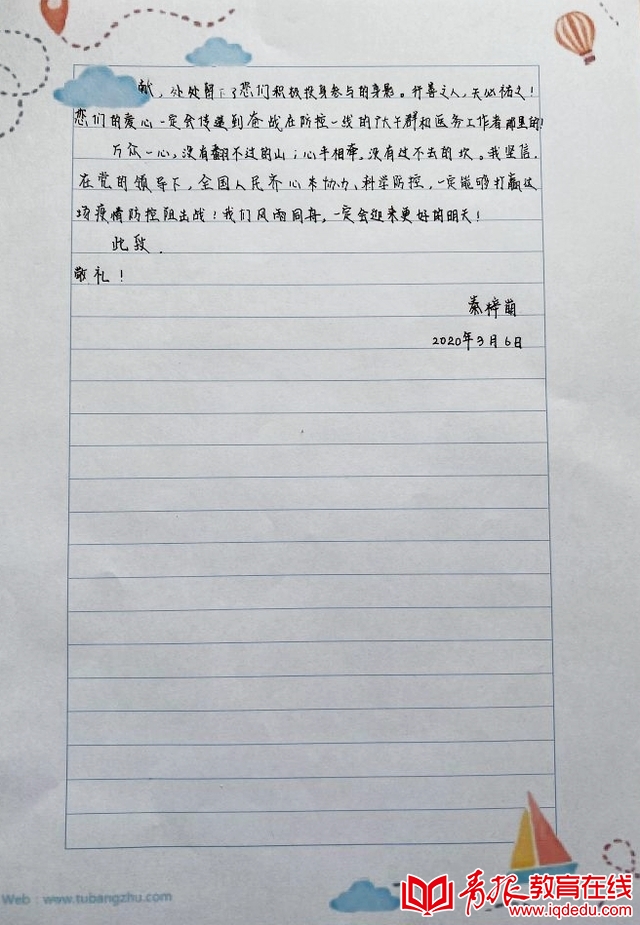 献，处处留下了您们积极投身参与的身影。行善之人，天必祐之！
您们的爱心一定会传递到奋战在防控一线的广大干群和医务工作者那里的！
万众一心，没有翻不过的山；心手相牵，没有过不去的坎。我坚信，
在党的领导下，全国人民齐心本协力、科学防控，一定能够打赢这
场疫情防控阻击战！我们风雨同舟，一定会迎来更好的明天！
此致，
敬礼！
秦梓萌
2020年3月6日
Web：www.tubangzhu.com
青报教育在线
www.iqdedu.com